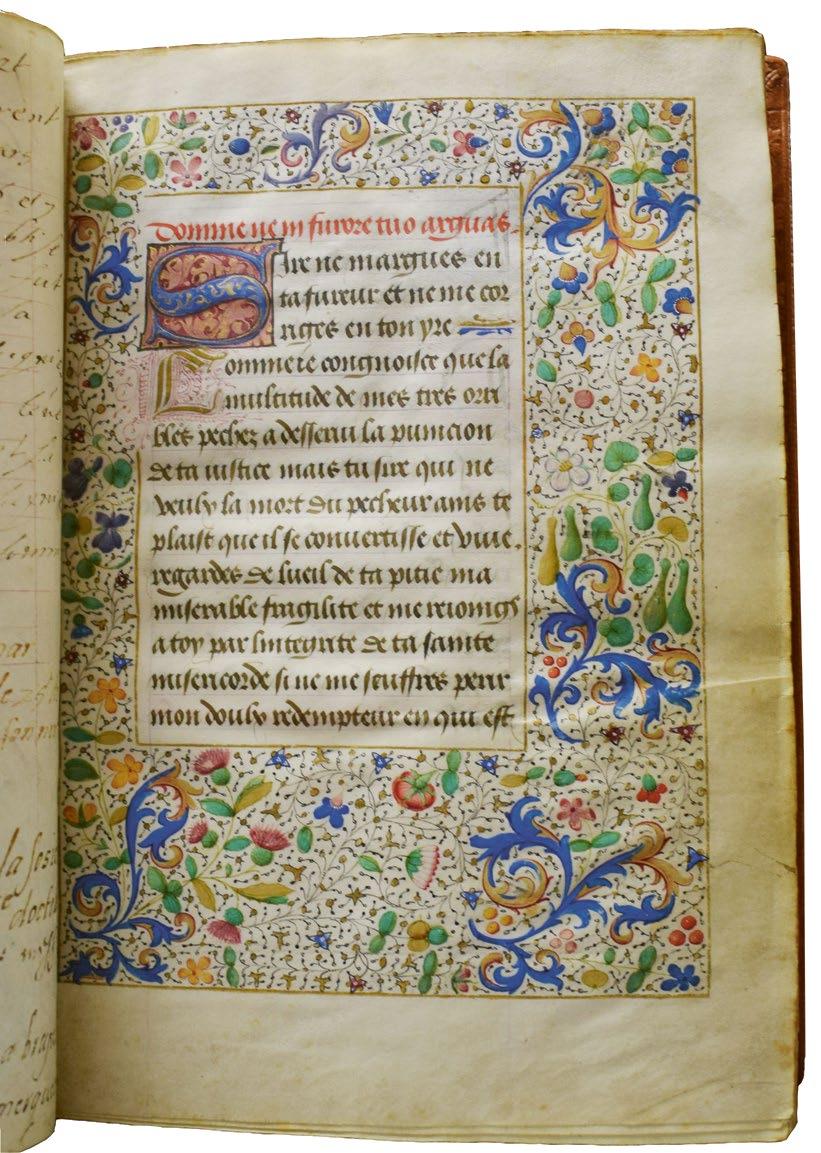 et
rent
Domine ne in furore tuo arguas.
Sire ne margues en
ta fureur et ne me cor
riges en ton yre
Comme ie congnoisce que la
multitude de mes tres orri
bles pechez a desserui la punicion
de ta iustice mais tu sire qui ne
veulx la mort du pecheur ains te
plaist que il se conuertisse et viue.
regardes de lueil de ta pitie ma
miserable fragilite et me reioings
a toy par lintegrite de ta sainte
misericorde si ne me seuffres perir
mon doulx redempteur en qui est